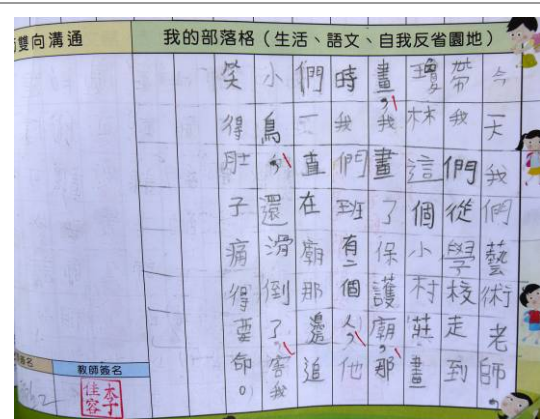 雙向溝通
我的部落格（生活、語文、自我反省園地）
今天我們藝術老師，
帶我們從學校走到
瓊林這個小村莊畫
畫，我畫了保護廟，那
時我們班有二個人，他
們一直在廟那邊追
小鳥，還滑倒了，害我
笑得肚子痛得要命。
簽名
教師簽名
李佳容